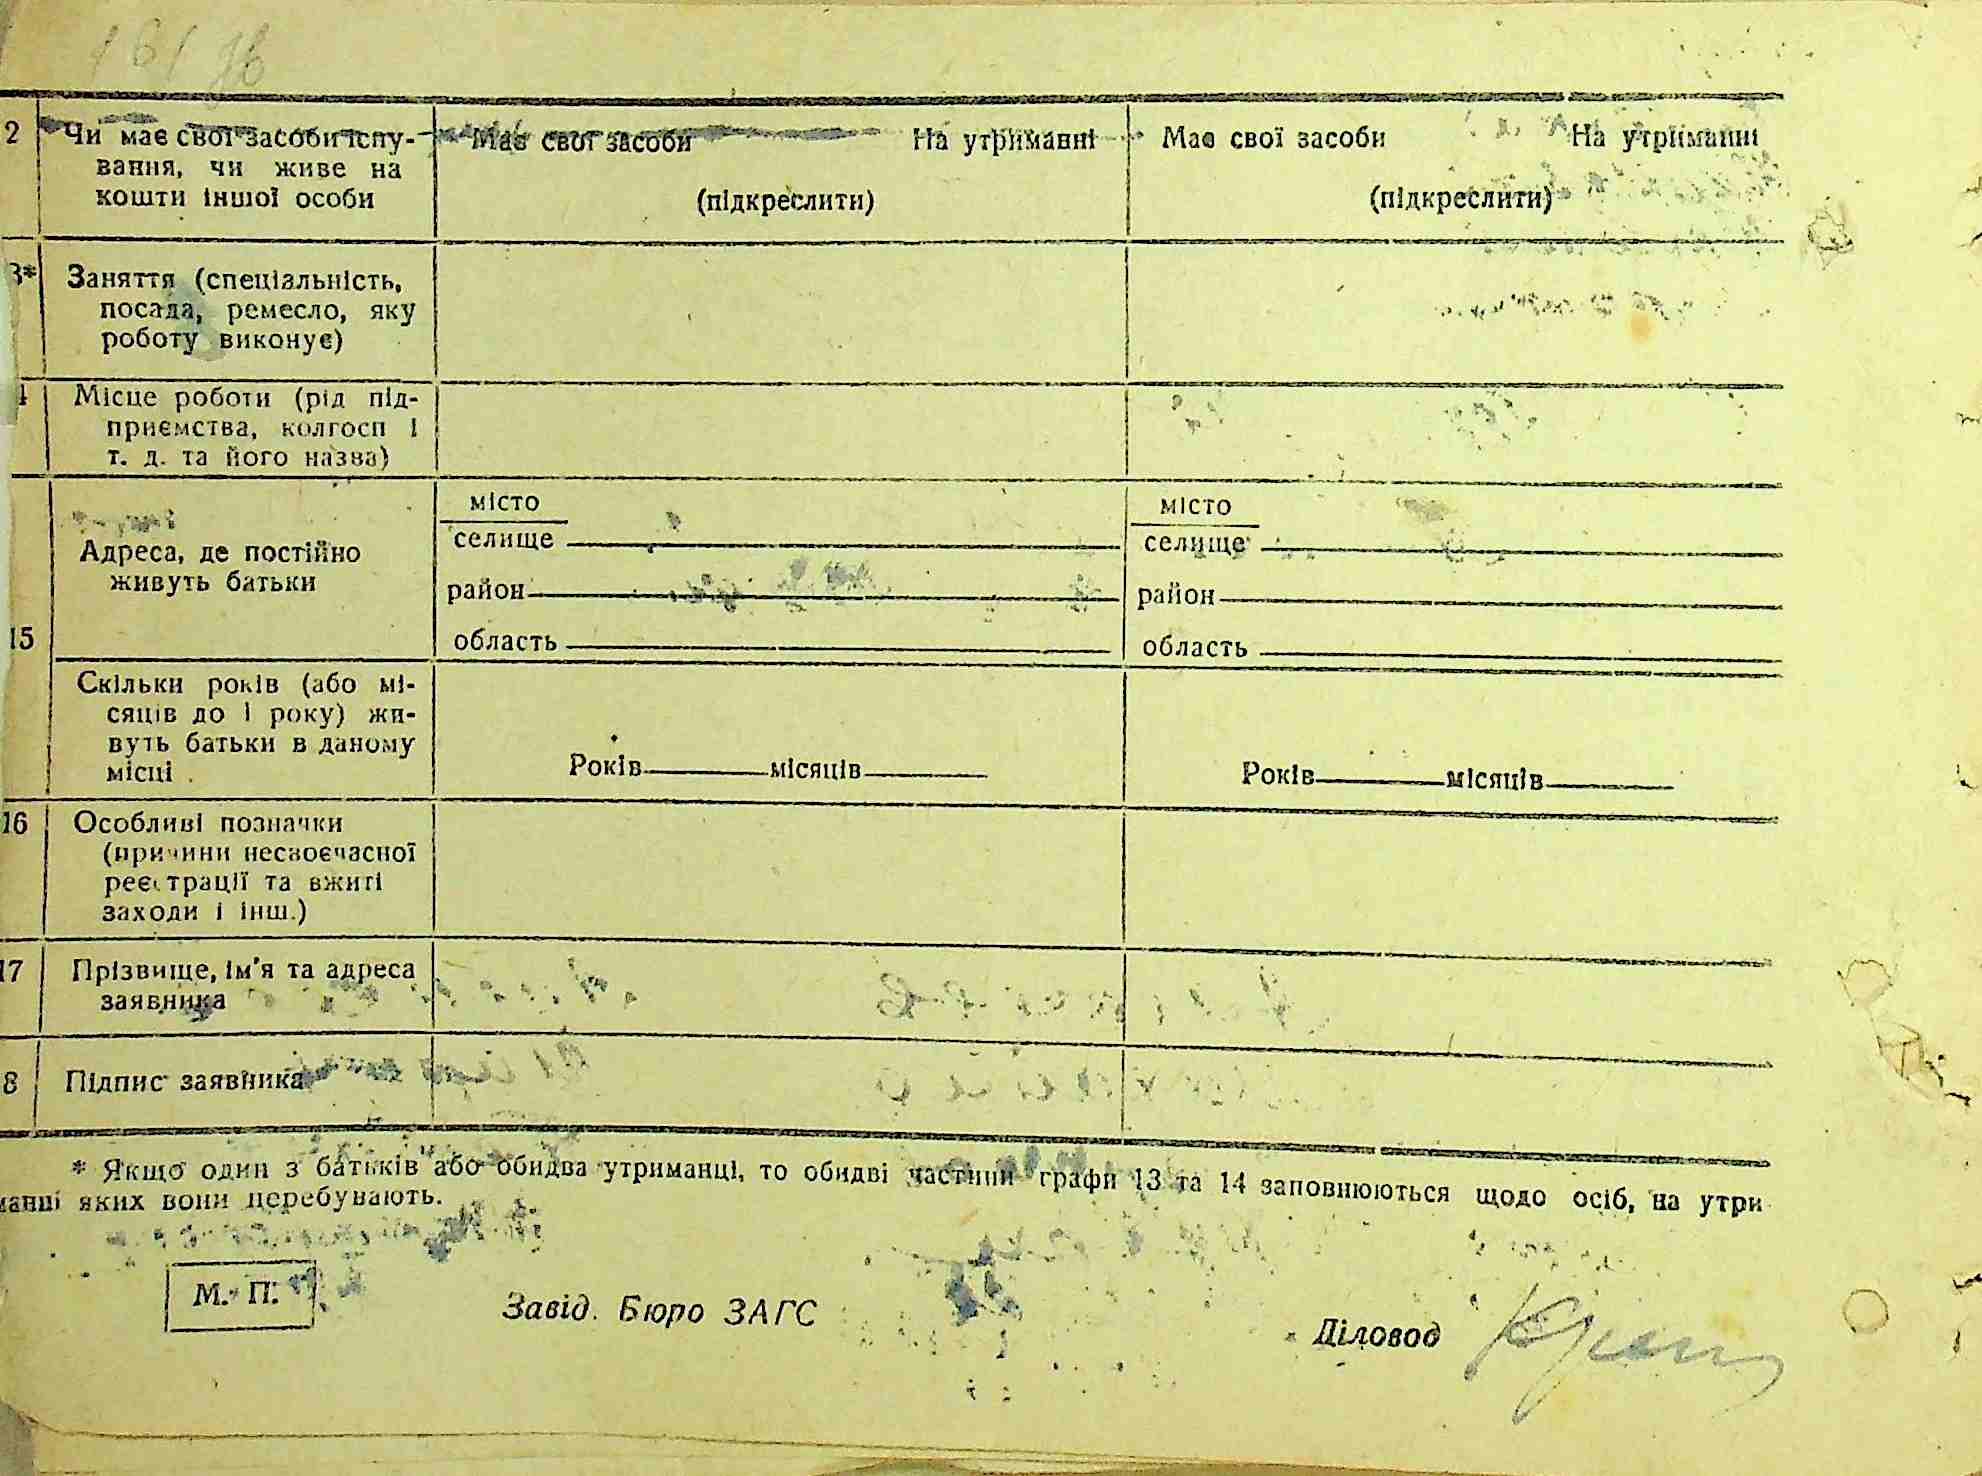 2 Чи має свої засоби існу- Має свої засоби На утриманні Має свої засоби На утриманні
вання, чи живе на
кошти іншої особи (підкреслити) (підкреслити)
3* Заняття (спеціальність,
посада, ремесло, яку
роботу виконує)
Місце роботи (рід під-
приємства, колгосп і
т. д. та його назва)
місто місто
селище селище
Адреса, де постійно
живуть батьки
район район
15 область область
Скільки років (або мі-
сяців до 1 року) жи-
вуть батьки в даному
місці Років місяців Років місяців
16 Особливі позначки
(причини несвоєчасної
реєстрації та вжиті
заходи і інш.)
17 Прізвище, ім'я та адреса
заявника
8 Підпис заявника
* Якщо один з батьків або обидва утриманці, то обидві частини графи 13 та 14 заповнюються щодо осіб, на утри
манці яких вони перебувають.
М. П. Завід. Бюро ЗАГС Діловод